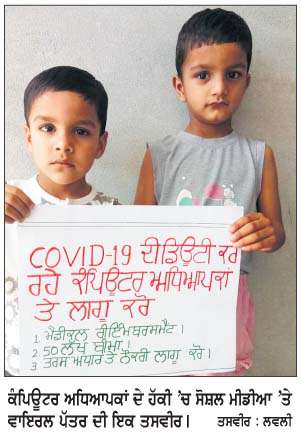 COVID-19 ਦੀ ਡਿਊਟੀ ਕਰ
ਰਹੇ ਕੰਪਿਊਟਰ ਅਧਿਆਪਕਾਂ
ਤੇ ਲਾਗੂ ਕਰੋ
1. ਮੈਡੀਕਲ ਰੀਇੰਮਬਰਸਮੈਂਟ।
2. 50 ਲੱਖ ਬੀਮਾ।
3. ਤਰਸ ਅਧਾਰ ਤੇ ਨੌਕਰੀ ਲਾਗੂ ਕਰੋ।
ਕੰਪਿਊਟਰ ਅਧਿਆਪਕਾਂ ਦੇ ਹੱਕੀ 'ਚ ਸੋਸ਼ਲ ਮੀਡੀਆ 'ਤੇ
ਵਾਇਰਲ ਪੱਤਰ ਦੀ ਇਕ ਤਸਵੀਰ। ਤਸਵੀਰ : ਲਵਲੀ